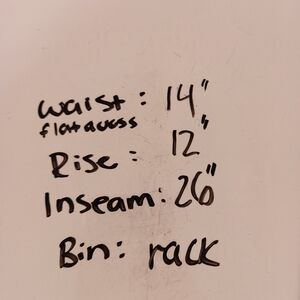 waist: 14"
flat across
Rise: 12"
Inseam: 26"
Bin: rack